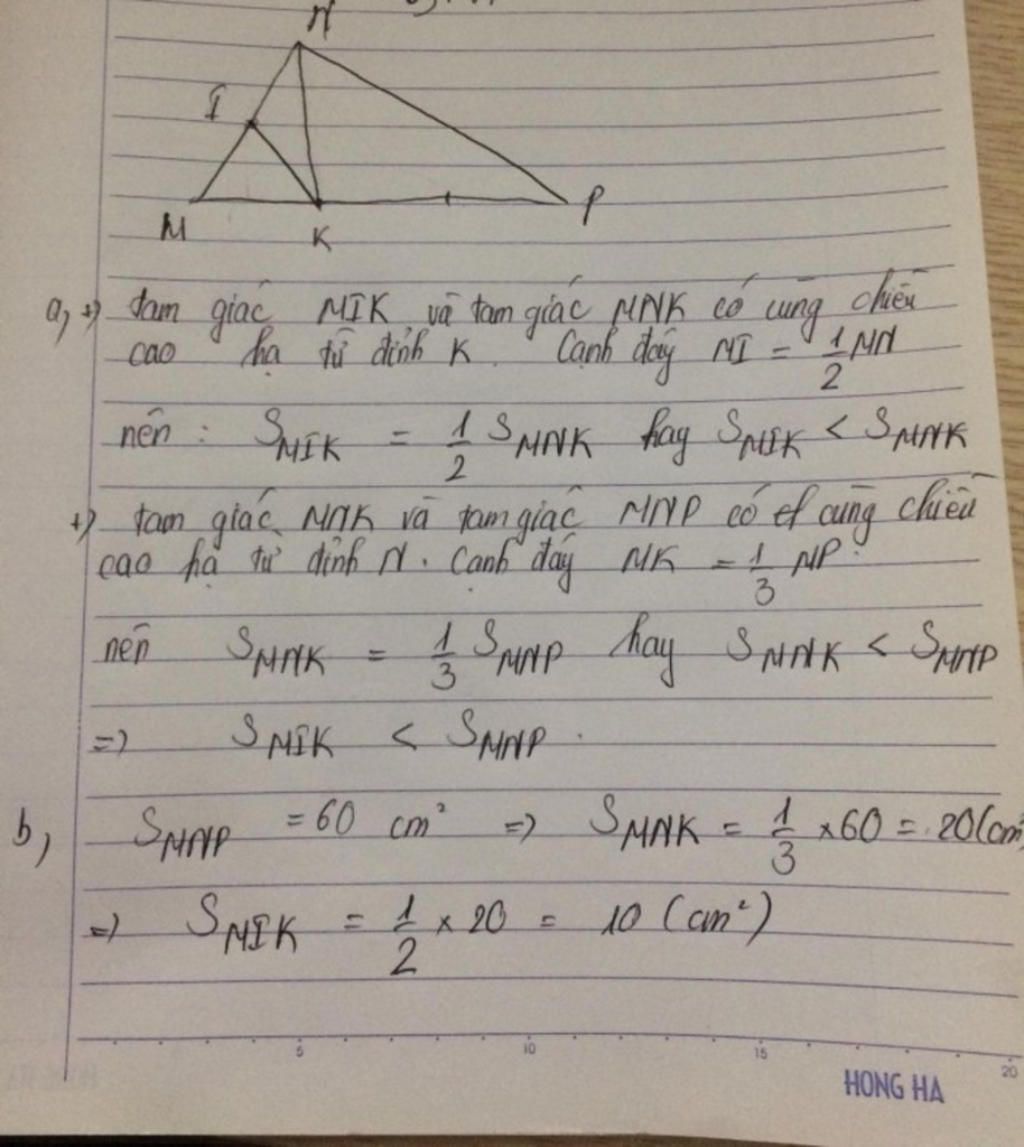 N
I
M
K
P
a, +) tam giác MIK và tam giác MNK có cùng chiều
cao hạ từ đỉnh K. Cạnh đáy MI = 1/2 MN
nên : S MIK = 1/2 S MNK hay S MIK < S MNK
+) tam giác MNK và tam giác MNP có cùng chiều
cao hạ từ đỉnh N. Cạnh đáy MK = 1/3 MP.
nên S MNK = 1/3 S MNP hay S MNK < S MNP
=) S MIK < S MNP.
b, S MNP = 60 cm² =) S MNK = 1/3 × 60 = 20 (cm²
=) S MIK = 1/2 × 20 = 10 (cm²)
5 10 15 20
HONG HA